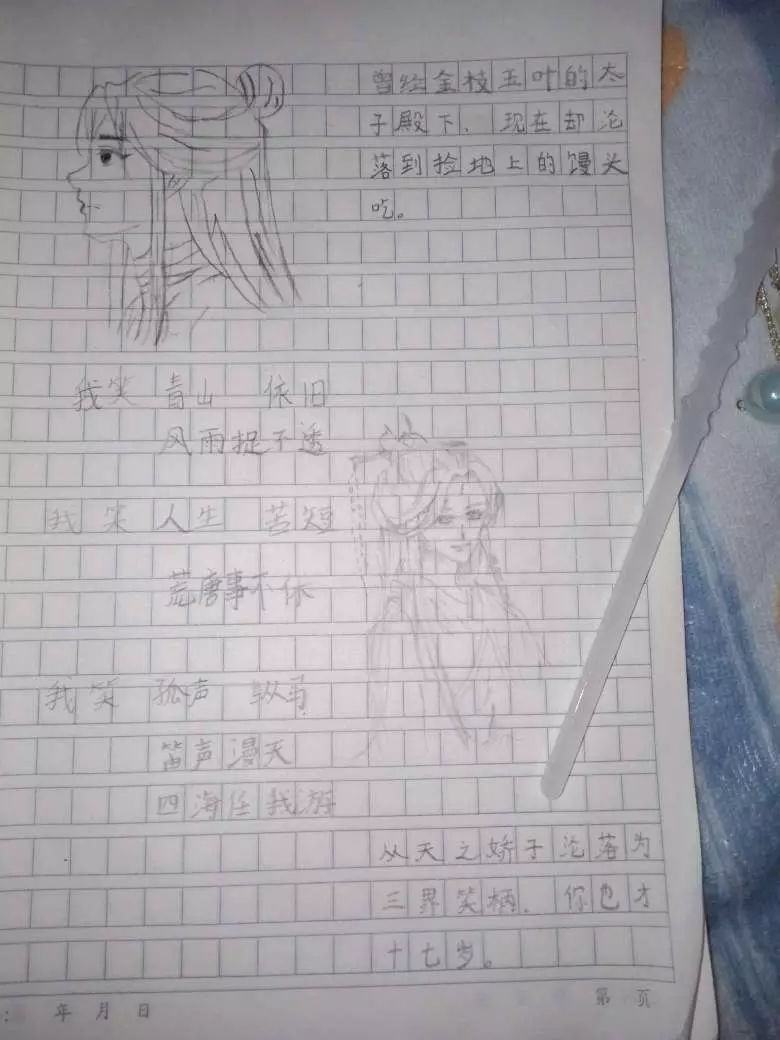 曾经金枝玉叶的太
子殿下、现在却沦
落到捡地上的馒头
吃。
我笑 青山 依旧
风雨捉不透
我笑 人生 苦短
荒唐事不休
我笑 孤声 纵马
笛声漫天
四海任我游
从天之娇子沦落为
三界笑柄、你也才
十七岁。
: 年 月 日
第 页